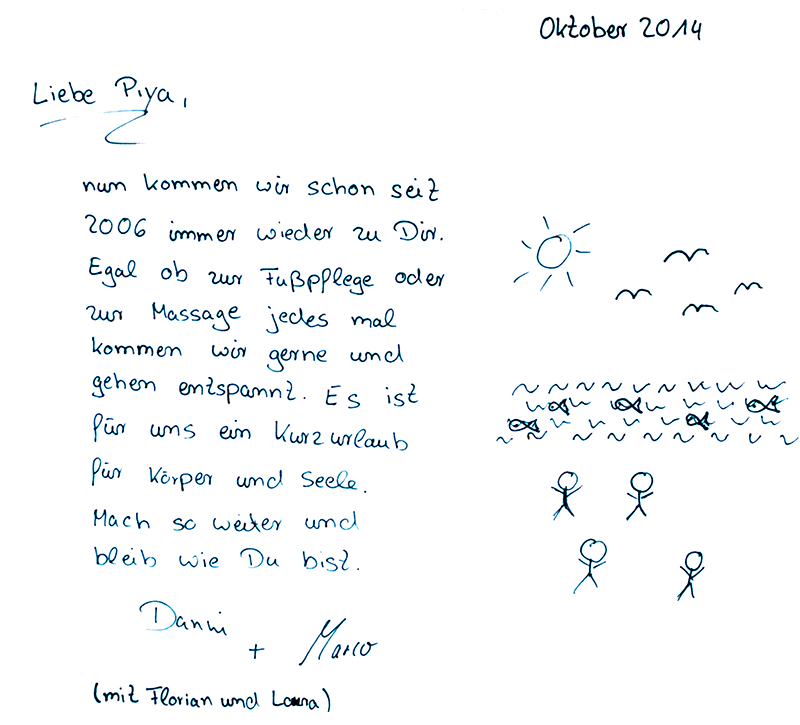 Oktober 2014
Liebe Piya,
nun kommen wir schon seit
2006 immer wieder zu Dir.
Egal ob zur Fußpflege oder
zur Massage jedes mal
kommen wir gerne und
gehen entspannt. Es ist
für uns ein Kurzurlaub
für Körper und Seele.
Mach so weiter und
bleib wie Du bist.
Danni
+ Marco
(mit Florian und )